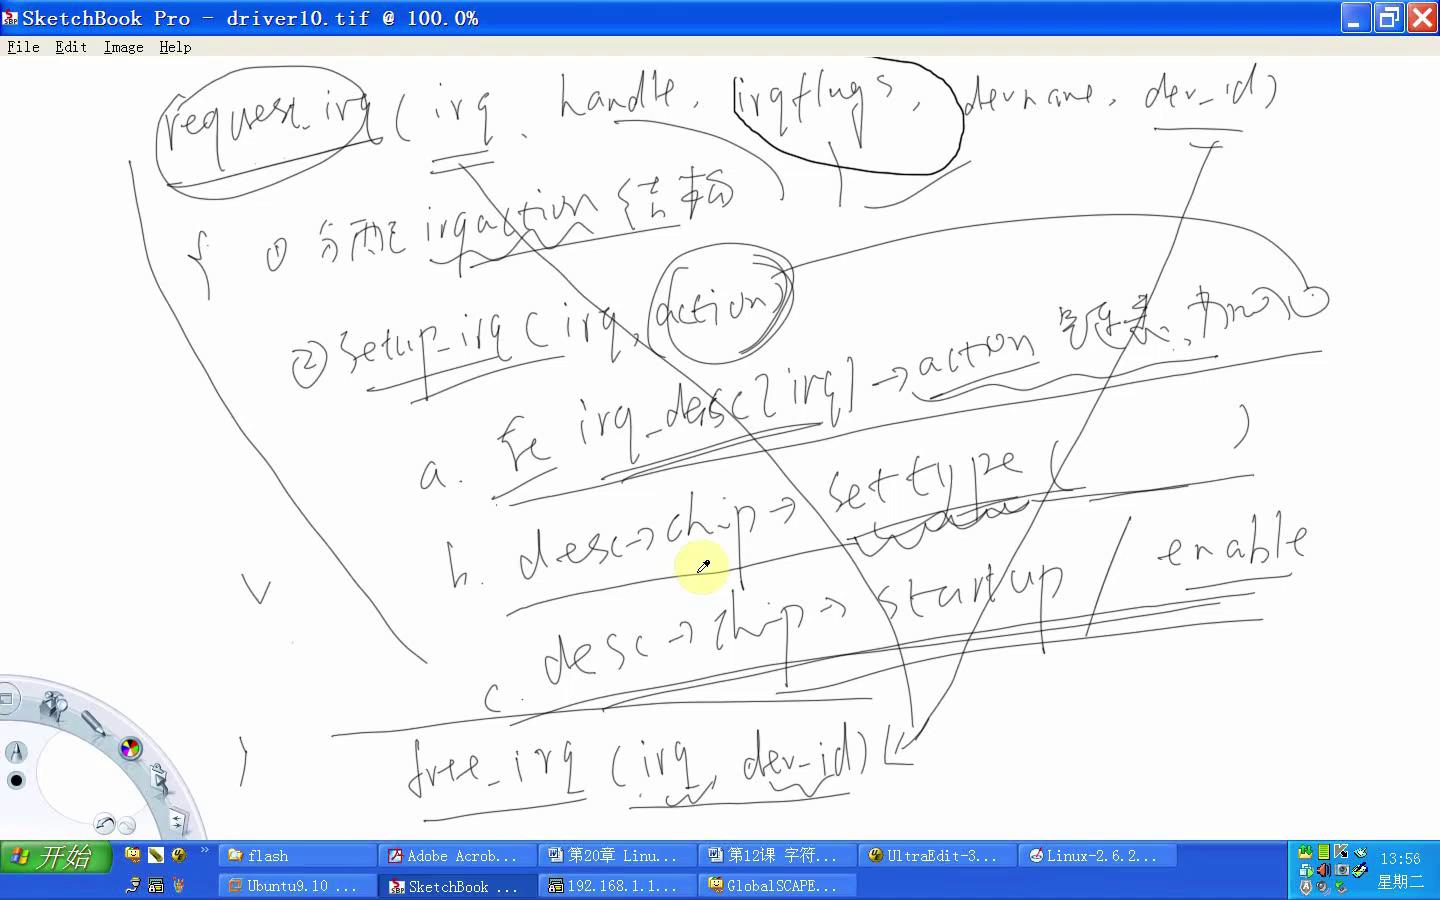 SketchBook Pro - driver10.tif @ 100.0%
File Edit Image Help
request_irq ( irq, handle, irqflags, devname, dev_id)
{ ① 分配 irqaction 结构
② setup_irq ( irq, action)
a. 在 irq_desc[irq] → action 链表
b. desc→chip→settype ( )
c. desc→chip→startup / enable
}
free_irq (irq, dev_id)
开始
flash
Adobe Acrob...
第20章 Linu...
第12课 字符...
UltraEdit-3...
Linux-2.6.2...
13:56
Ubuntu9.10 ...
SketchBook ...
192.168.1.1...
GlobalSCAPE...
星期二